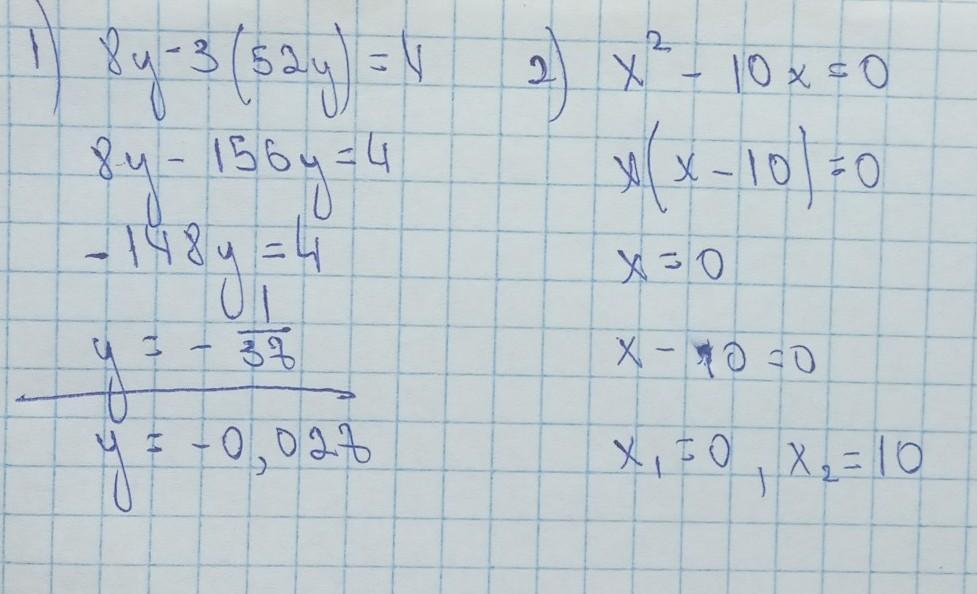 1) 8y-3(52y)=4
8y-156y=4
-148y=4
y = - 1/37
y = -0,027
2) x² - 10x = 0
x(x-10)=0
x=0
x-10=0
x₁=0, x₂=10